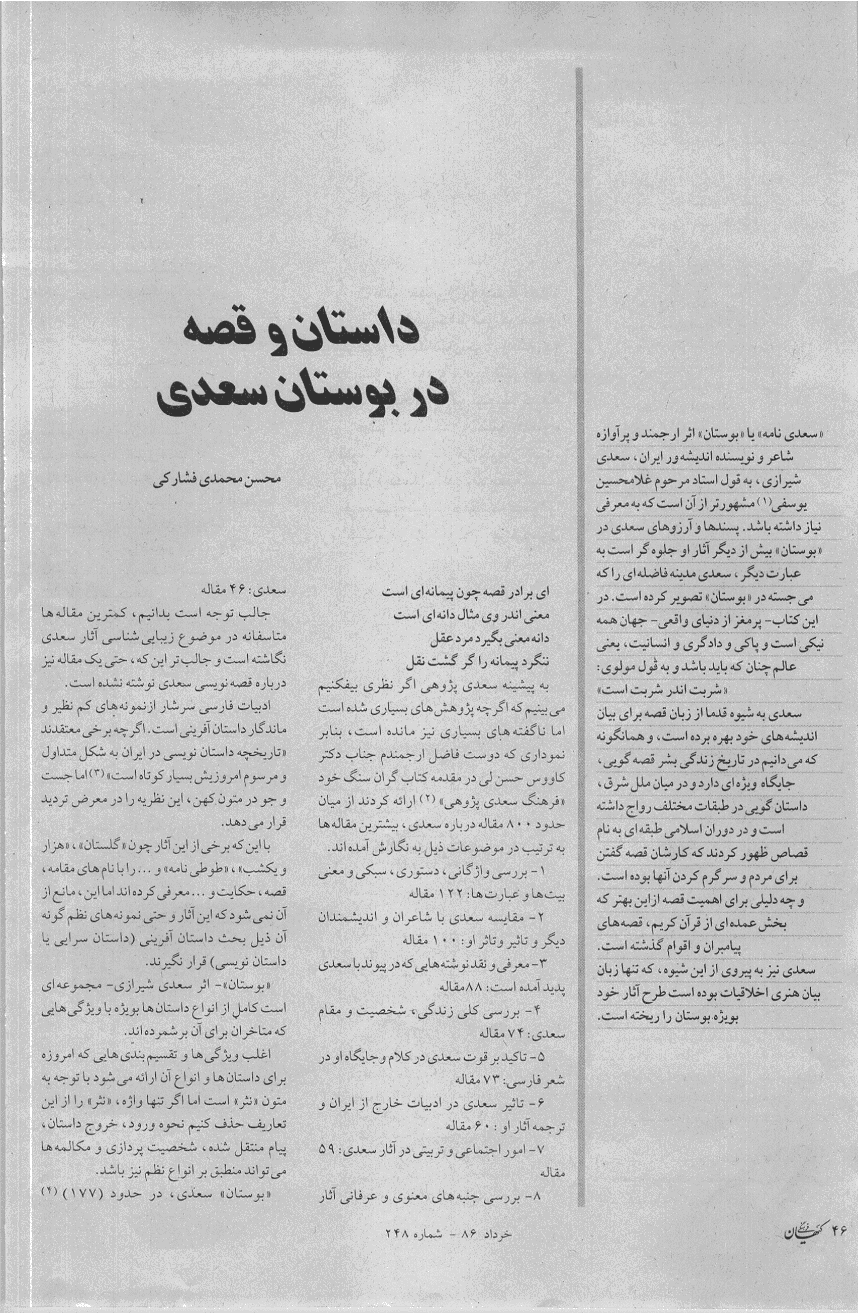 داستان و قصه
در بوستان سعدی
محسن محمدی فشارکی
«سعدی نامه» یا «بوستان» اثر ارجمند و پرآوازه
شاعر و نویسنده اندیشه‌ور ایران، سعدی
شیرازی، به قول استاد مرحوم غلامحسین
یوسفی(۱) مشهورتر از آن است که به معرفی
نیاز داشته باشد. پسندها و آرزوهای سعدی در
«بوستان» بیش از دیگر آثار او جلوه گر است به
عبارت دیگر، سعدی مدینه فاضله‌ای را که
می جسته در «بوستان» تصویر کرده است. در
این کتاب- پرمغز از دنیای واقعی- جهان همه
نیکی است و پاکی و دادگری و انسانیت، یعنی
عالم چنان که باید باشد و به قول مولوی:
«شربت اندر شربت است»
سعدی به شیوه قدما از زبان قصه برای بیان
اندیشه‌های خود بهره برده است، و همانگونه
که می‌دانیم در تاریخ زندگی بشر قصه گویی،
جایگاه ویژه‌ای دارد و در میان ملل شرق،
داستان گویی در طبقات مختلف رواج داشته
است و در دوران اسلامی طبقه‌ای به نام
قصاص ظهور کردند که کارشان قصه گفتن
برای مردم و سرگرم کردن آنها بوده است.
و چه دلیلی برای اهمیت قصه از این بهتر که
بخش عمده‌ای از قرآن کریم، قصه‌های
پیامبران و اقوام گذشته است.
سعدی نیز به پیروی از این شیوه، که تنها زبان
بیان هنری اخلاقیات بوده است طرح آثار خود
بویژه بوستان را ریخته است.
ای برادر قصه چون پیمانه‌ای است
معنی اندر وی مثال دانه‌ای است
دانه معنی بگیرد مرد عقل
ننگرد پیمانه را گر گشت نقل
به پیشینه سعدی پژوهی اگر نظری بیفکنیم
می‌بینیم که اگرچه پژوهش‌های بسیاری شده است
اما ناگفته‌های بسیاری نیز مانده است، بنابر
نموداری که دوست فاضل ارجمندم جناب دکتر
کاووس حسن لی در مقدمه کتاب گران سنگ خود
«فرهنگ سعدی پژوهی» (۲) ارائه کردند از میان
حدود ۸۰۰ مقاله درباره سعدی، بیشترین مقاله‌ها
به ترتیب در موضوعات ذیل به نگارش آمده‌اند.
۱- بررسی واژگانی، دستوری، سبکی و معنی
بیت‌ها و عبارت‌ها: ۱۲۲ مقاله
۲- مقایسه سعدی با شاعران و اندیشمندان
دیگر و تاثیر وتاثر او: ۱۰۰ مقاله
۳- معرفی و نقد نوشته‌هایی که در پیوند با سعدی
پدید آمده است: ۸۸مقاله
۴- بررسی کلی زندگی، شخصیت و مقام
سعدی: ۷۴ مقاله
۵- تاکید بر قوت سعدی در کلام و جایگاه او در
شعر فارسی: ۷۳ مقاله
۶- تاثیر سعدی در ادبیات خارج از ایران و
ترجمه آثار او : ۶۰ مقاله
۷- امور اجتماعی و تربیتی در آثار سعدی: ۵۹
مقاله
۸- بررسی جنبه‌های معنوی و عرفانی آثار
سعدی: ۴۶ مقاله
جالب توجه است بدانیم، کمترین مقاله‌ها
متاسفانه در موضوع زیبایی شناسی آثار سعدی
نگاشته است و جالب تر این که، حتی یک مقاله نیز
درباره قصه نویسی سعدی نوشته نشده است.
ادبیات فارسی سرشار ازنمونه‌های کم نظیر و
ماندگار داستان آفرینی است. اگرچه برخی معتقدند
«تاریخچه داستان نویسی در ایران به شکل متداول
و مرسوم امروزیش بسیار کوتاه است»(۳)اما جست
و جو در متون کهن، این نظریه را در معرض تردید
قرار می‌دهد.
با این که برخی از این آثار چون «گلستان»، «هزار
و یکشب»، «طوطی نامه» و ... را با نام های مقامه،
قصه، حکایت و ... معرفی کرده اند اما این، مانع از
آن نمی شود که این آثار و حتی نمونه‌های نظم گونه
آن ذیل بحث داستان آفرینی (داستان سرایی یا
داستان نویسی) قرار نگیرند.
«بوستان»- اثر سعدی شیرازی- مجموعه‌ای
است کامل از انواع داستان‌ها بویژه با ویژگی‌هایی
که متاخران برای آن برشمرده‌اند.
اغلب ویژگی‌ها و تقسیم بندی‌هایی که امروزه
برای داستان‌ها و انواع آن ارائه می شود با توجه به
متون «نثر» است اما اگر تنها واژه، «نثر» را از این
تعاریف حذف کنیم نحوه ورود، خروج داستان،
پیام منتقل شده، شخصیت پردازی و مکالمه‌ها
می‌تواند منطبق بر انواع نظم نیز باشد.
«بوستان» سعدی، در حدود (۱۷۷) (۴)
۴۶ کیهان فرهنگی
خرداد ۸۶ - شماره ۲۴۸